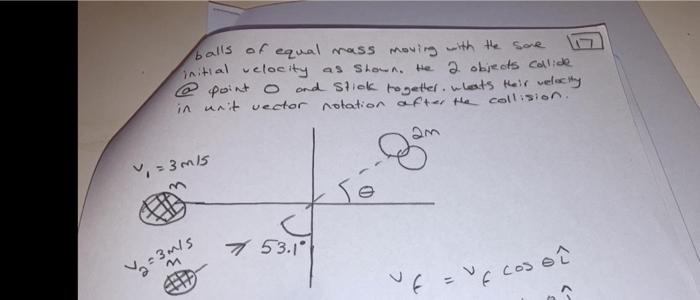 balls of equal mass moving with the same 17
initial velocity as shown. the 2 objects collide
@ point O and stick together. whats their velocity
in unit vector notation after the collision.
2m
v₁ = 3 m/s
m
θ
53.1°
v₂ = 3 m/s
m
v_f = v_f cos θ î